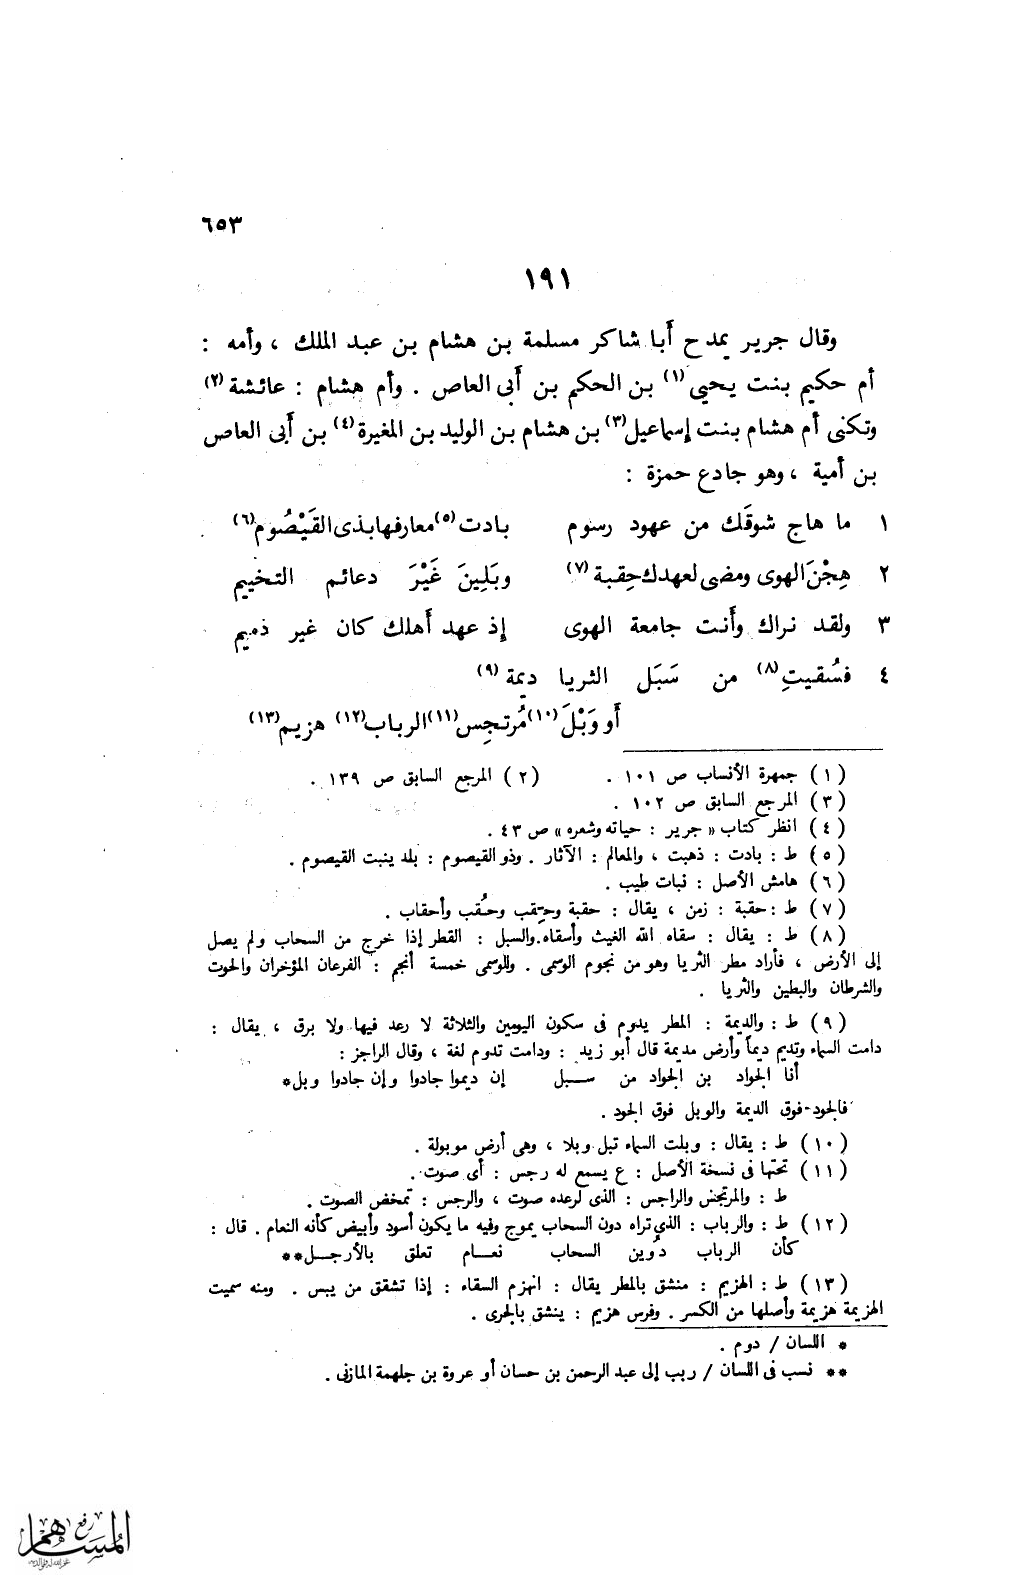 ٦٥٣
١٩١
وقال جرير يمدح أَبا شاكر مسلمة بن هشام بن عبد الملك ، وأمه :
أم حكيم بنت يحيى (١) بن الحكم بن أَبى العاص . وأم هشام : عائشة (٢)
وتكنى أم هشام بنت إسماعيل (٣) بن هشام بن الوليد بن المغيرة (٤) بن أَبى العاص
بن أمية ، وهو جادع حمزة :
١ ما هاج شوقَك من عهود رسوم بادت (٥) معارفها بذى القَيْصُوم (٦)
٢ هِجْنَ الهوى ومضى لعهدك حِقبة (٧) وبَلِينَ غَيْرَ دعائم التخييم
٣ ولقد نراك وأَنت جامعة الهوى إذ عهد أَهلك كان غير ذميم
٤ فسُقيتِ (٨) من سَبَل الثريا ديمة (٩)
أَو وَبْلَ (١٠) مُرتجِس (١١) الرباب (١٢) هزيم (١٣)
(١) جمهرة الأنساب ص ١٠١ . (٢) المرجع السابق ص ١٣٩ .
(٣) المرجع السابق ص ١٠٢ .
(٤) انظر كتاب « جرير : حياته وشعره » ص ٤٣ .
(٥) ط : بادت : ذهبت ، والمعالم : الآثار . وذو القيصوم : بلد ينبت القيصوم .
(٦) هامش الأصل : نبات طيب .
(٧) ط : حقبة : زمن ، يقال : حقبة وحِقب وحُقب وأحقاب .
(٨) ط : يقال : سقاه الله الغيث وأسقاه . والسبل : القطر إذا خرج من السحاب ولم يصل
إلى الأرض ، فأراد مطر الثريا وهو من نجوم الوسمى . وللوسمى خمسة أنجم : الفرعان المؤخران والحوت
والشرطان والبطين والثريا .
(٩) ط : والديمة : المطر يدوم فى سكون اليومين والثلاثة لا رعد فيها ولا برق ، يقال :
دامت السماء وتديم ديماً وأرض مديمة قال أبو زيد : ودامت تدوم لغة ، وقال الراجز :
أنا الجواد بن الجواد من سبل إن ديموا جادوا وإن جادوا وبل*
فالجود فوق الديمة والوبل فوق الجود .
(١٠) ط : يقال : وبلت السماء تبل وبلا ، وهى أرض موبولة .
(١١) تحتها فى نسخة الأصل : ع يسمع له رجس : أى صوت .
ط : والمرتجس والراجس : الذى لرعده صوت ، والرجس : تمخض الصوت .
(١٢) ط : والرباب : الذي تراه دون السحاب يموج وفيه ما يكون أسود وأبيض كأنه النعام . قال :
كأن الرباب دُوين السحاب نعام تعلق بالأرجل**
(١٣) ط : الهزيم : منشق بالمطر يقال : انهزم السقاء : إذا تشقق من يبس . ومنه سميت
الهزيمة هزيمة وأصلها من الكسر . وفرس هزيم : ينشق بالجرى .
* اللسان / دوم .
** نسب فى اللسان / ربب إلى عبد الرحمن بن حسان أو عروة بن جلهمة المازنى .